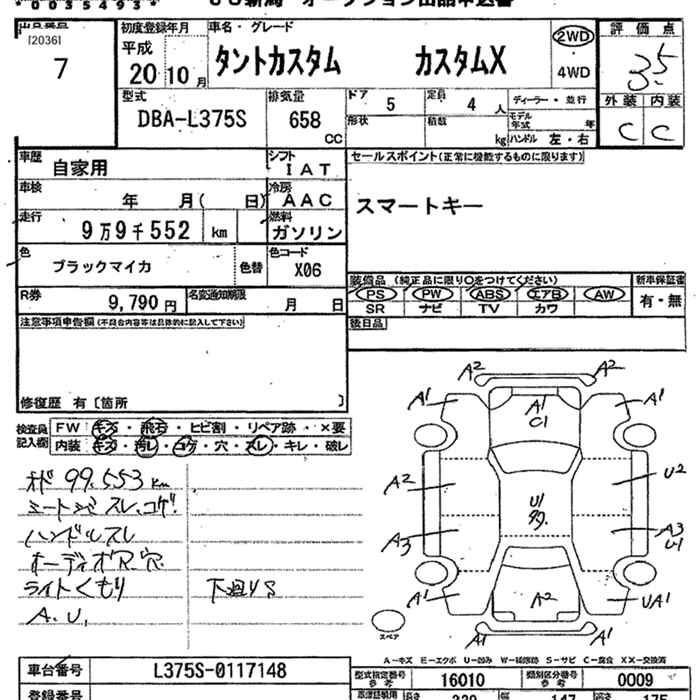 *0035493*
JU新潟 オークション出品申込書
出品業店
[2036]
7
初度登録年月
平成
20 10月
車名・グレード
タントカスタム カスタムX
2WD
・
4WD
評価点
3.5
外装 内装
C C
型式
DBA-L375S
排気量
658
CC
ドア 5
定員 4 人
ディーラー・並行
形状
積載
kg
モデル年式 年
ハンドル 左・右
車歴
自家用
シフト
IAT
車検
年 月( 日)
冷房
AAC
走行
9万9千552 km
燃料
ガソリン
色
ブラックマイカ
色替
色コード
X06
R券
9,790円
名変通知期限
月 日
セールスポイント(正常に機能するものに限ります)
スマートキー
装備品 (純正品に限り○をつけてください)
新車保証書
PS PW ABS エアB AW
SR ナビ TV カワ
有・無
後日品
注意事項申告欄(不具合内容等は具体的に記入して下さい)
修復歴 有 [箇所 ]
検査員記入欄
FW キズ・飛石・ヒビ割・リペア跡・×要
内装 キズ・汚レ・コゲ・穴・スレ・キレ・破レ
99.553km
スレ、コゲ
ハンドルスレ
ライトくもり
A.U,
A2 A2
A1 A1 C1 A1
A2 U2
U1
A3 A3 U1
A1 A2 UA1
A1 A1
スペア
A-キズ E-エクボ U-凹み W-補修跡 S-サビ C-腐食 XX-交換済
車台番号 L375S-0117148
型式指定番号 参考 16010
類別区分番号 参考 0009
登録番号
339 147 175